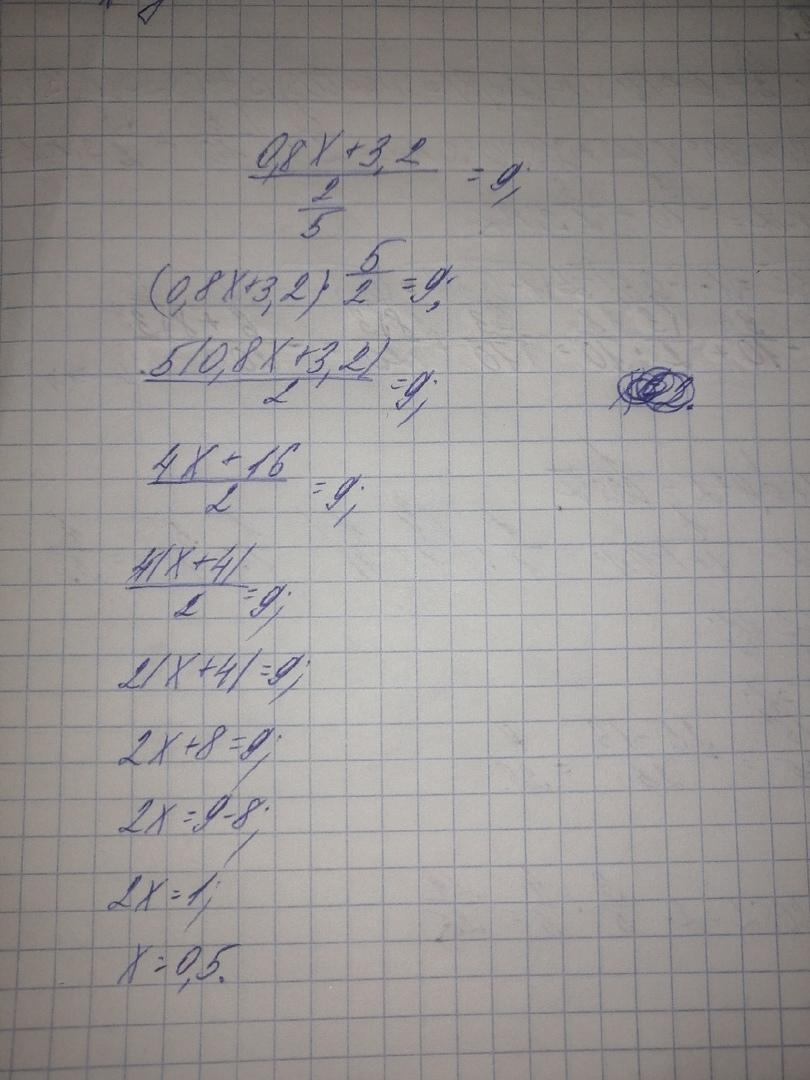 (0,8x+3,2)/(2/5) = 9;
(0,8x+3,2)·5/2 = 9;
5(0,8x+3,2)/2 = 9;
(4x+16)/2 = 9;
4(x+4)/2 = 9;
2(x+4)=9;
2x+8=9;
2x=9-8;
2x=1;
x=0,5.